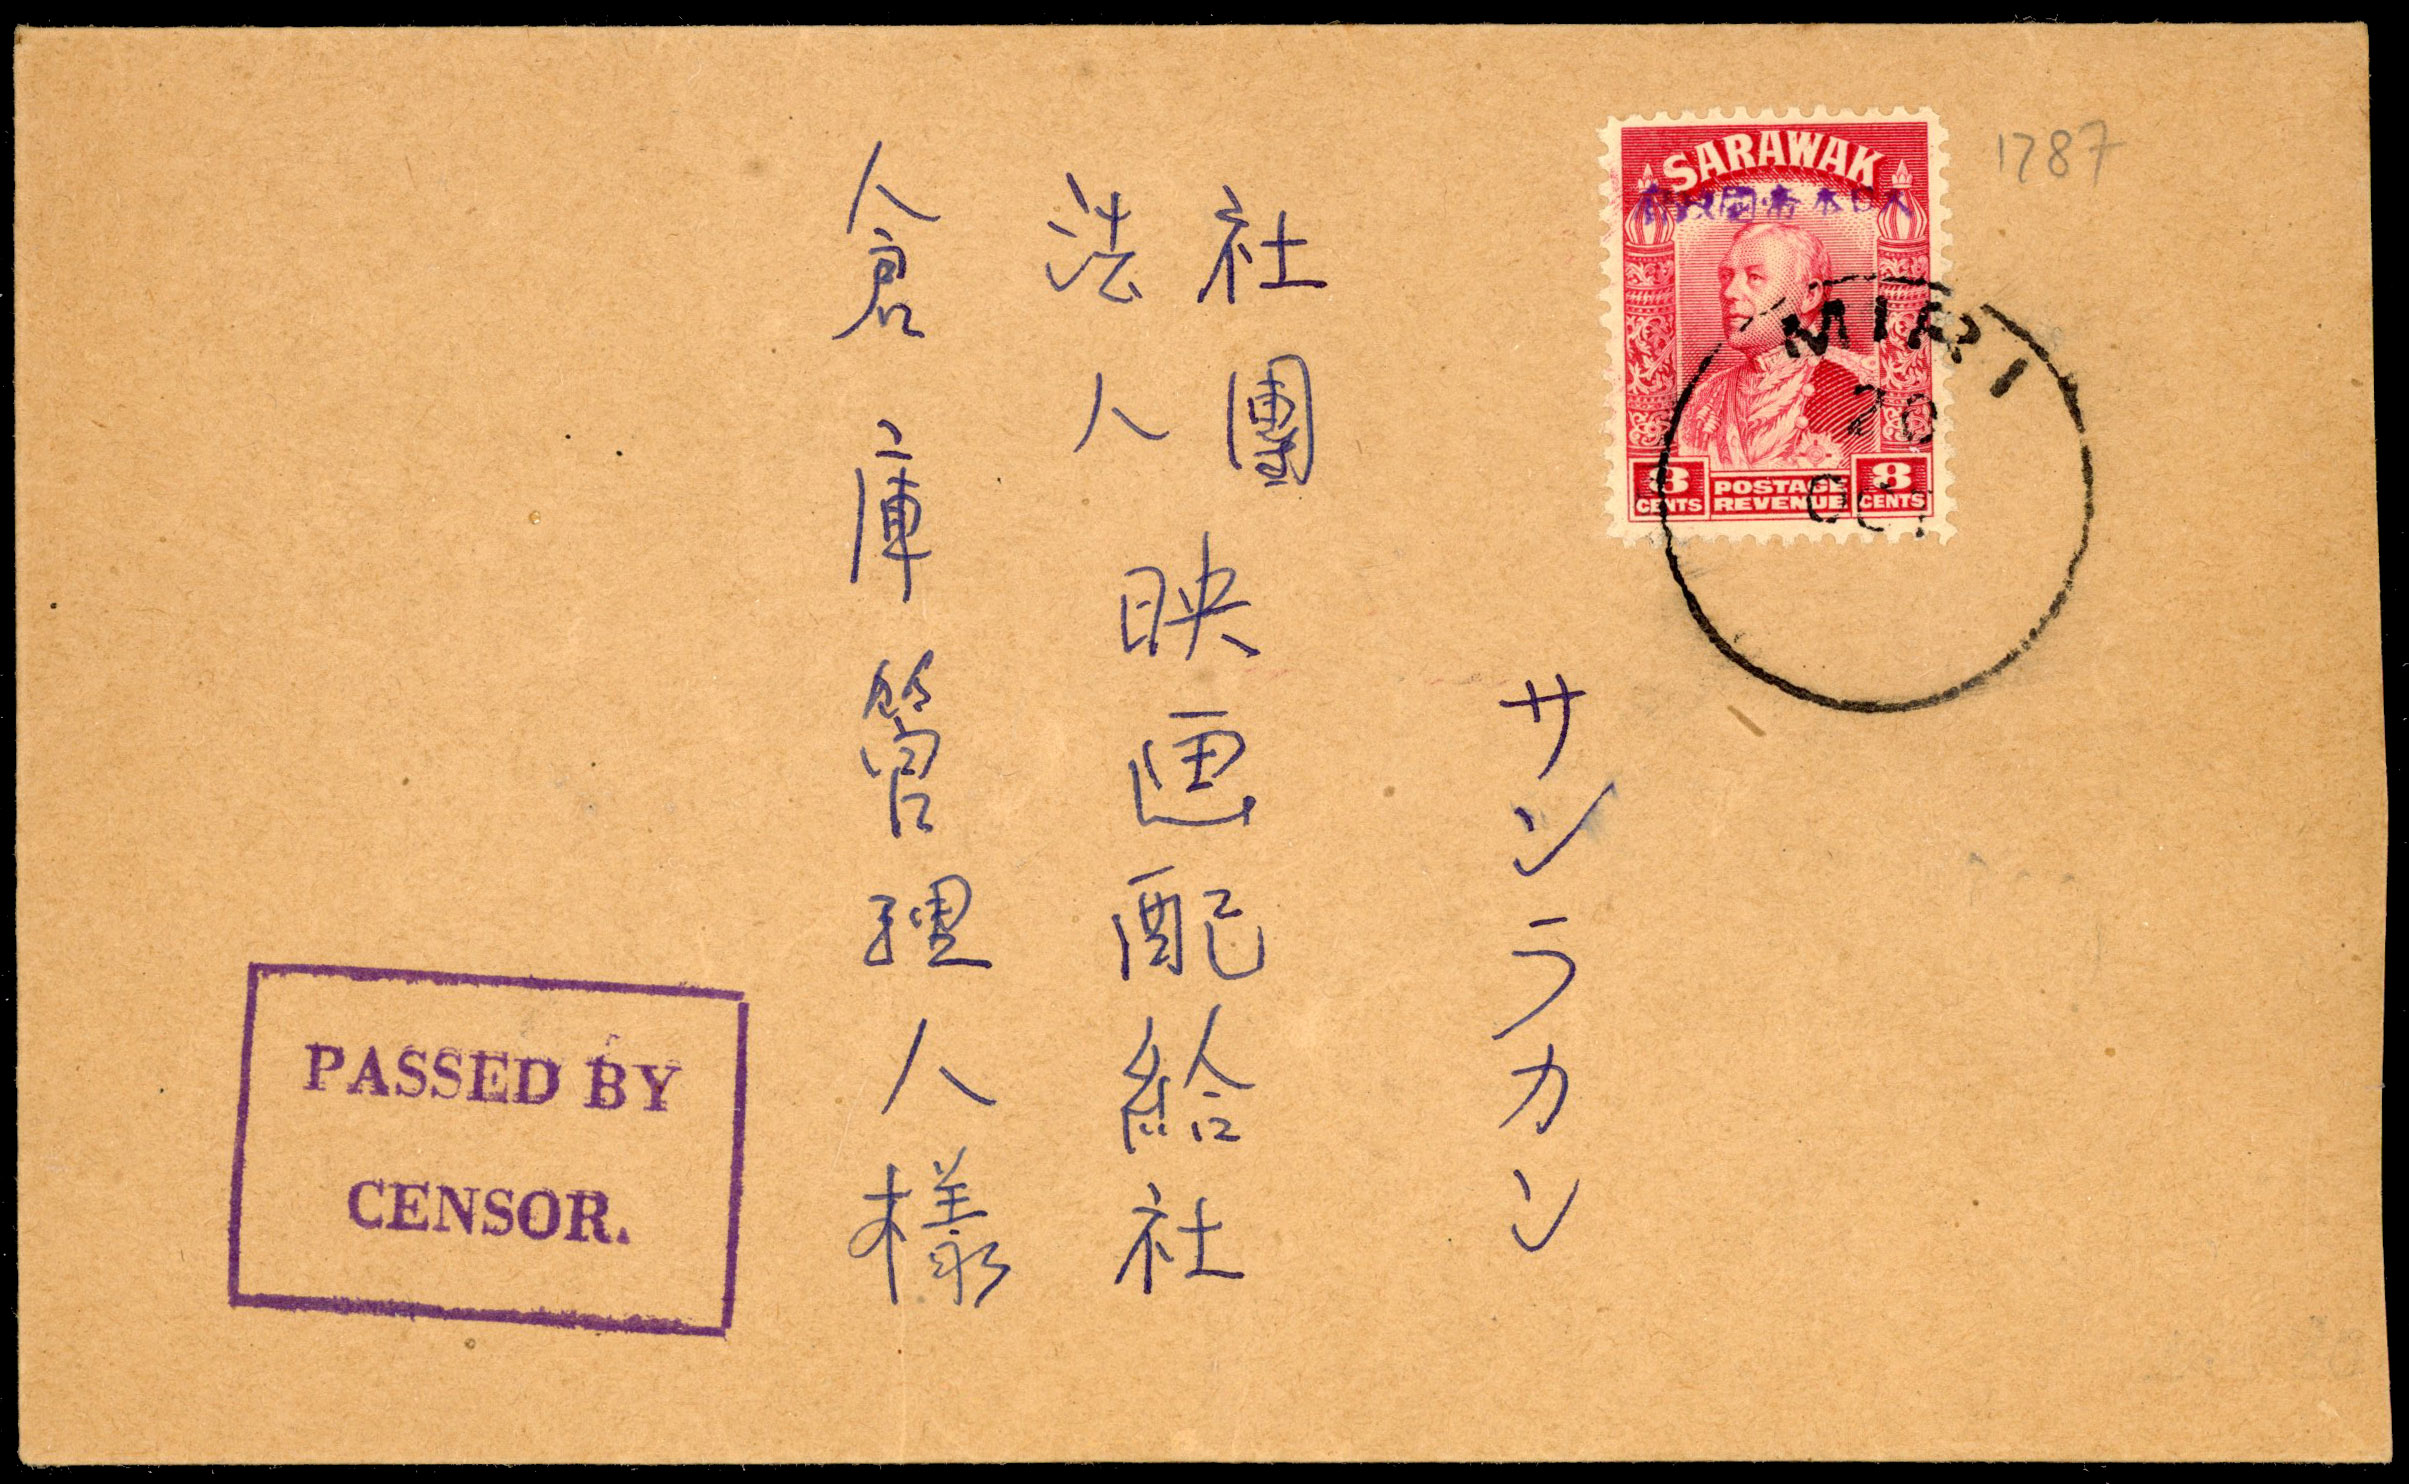 1787
SARAWAK
大日本帝國政府
8 CENTS POSTAGE REVENUE 8 CENTS
MIRI
OCT
サンラカン
社團法人 映画配給社
倉庫管理人様
PASSED BY
CENSOR.